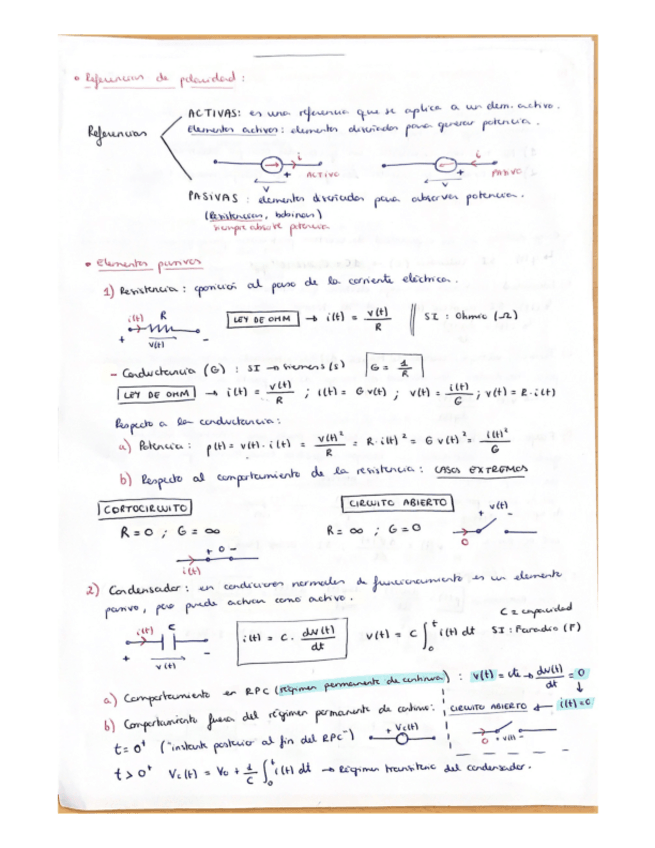 • Referencias de polaridad :
ACTIVAS: es una referencia que se aplica a un elem. activo.
Referencias
Elementos activos : elementos diseñados para generar potencia.
i + ACTIVO v
i + PASIVO v
PASIVAS : elementos diseñados para absorver potencia.
(Resistencias, bobinas)
siempre absorve potencia
• Elementos pasivos
1) Resistencia : oposición al paso de la corriente eléctrica.
i(t) R + v(t) -
LEY DE OHM → i(t) = v(t)/R || SI : Ohmio (Ω)
- Conductancia (G) : SI → siemens (S) G = 1/R
LEY DE OHM → i(t) = v(t)/R ; i(t) = G v(t) ; v(t) = i(t)/G ; v(t) = R · i(t)
Respecto a la conductancia :
a) Potencia : p(t) = v(t) · i(t) = v(t)²/R = R · i(t)² = G v(t)² = i(t)²/G
b) Respecto al comportamiento de la resistencia : CASOS EXTREMOS
CORTOCIRCUITO
CIRCUITO ABIERTO
+ v(t) -
R = 0 ; G = ∞
R = ∞ ; G = 0
0
+ 0 -
i(t)
2) Condensador : en condiciones normales de funcionamiento es un elemento
pasivo, pero puede actuar como activo.
C = capacidad
i(t) C + v(t) -
i(t) = C · dv(t)/dt
v(t) = C ∫₀ᵗ i(t) dt
SI : Faradio (F)
a) Comportamiento en RPC (régimen permanente de continua) : v(t) = cte → dv(t)/dt = 0
b) Comportamiento fuera del régimen permanente de continua :
CIRCUITO ABIERTO ← i(t) = 0
t = 0⁺ ("instante posterior al fin del RPC") + Vc(t) -
0 + v(t) -
t > 0⁺ Vc(t) = V₀ + 1/C ∫₀ᵗ i(t) dt → Régimen transitorio del condensador.